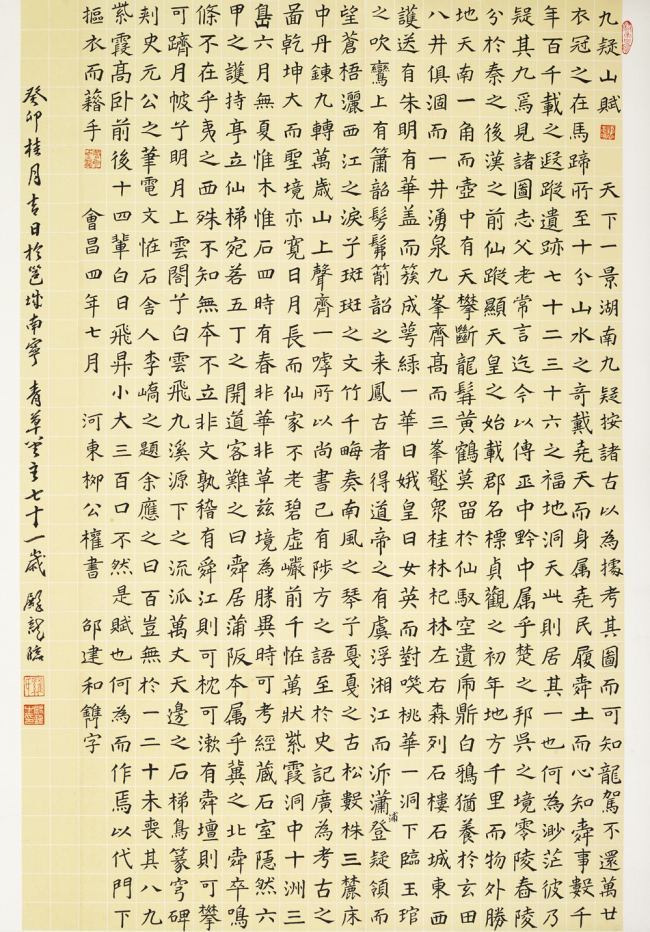 九疑山賦 天下一景湖南九疑按諸古以為據考其圖而可知龍駕不還萬廿
衣冠之在馬蹄所至十分山水之奇戴堯天而身属堯民履舜土而心知舜事數千
年百千載之疑蹤遺跡七十二三十六之福地洞天此則居其一也何為渺茫彼乃
疑其九焉見諸圖志父老常言迄今以傳巫中黔中属乎楚之邦吳之境零陵舂陵
分於秦之後漢之前仙蹤顯天皇之始載郡名標貞觀之初年地方千里而物外勝
地天南一角而壺中有天攀斷龍髯黃鶴莫留於仙馭空遺鼎白鴉猶養於玄田
八井俱涸而一井湧泉九峯齊高而三峯壓衆桂林杞林左右森列石樓石城東西
護送有朱明有華盖而簇成萼緑一華曰娥皇曰女英而對喚桃華一洞下臨玉琯
之吹鸞上有簫韶髣髴箭韶之来鳳古者得道帝之有虞浮湘江而泝瀟浦登疑領而
望蒼梧灑西江之淚子斑斑之文竹千畮奏南風之琴子戛戛之古松數株三麓床
中丹鍊九轉萬歲山上聲齊一嘑所以尚書已有陟方之語至於史記廣為考古之
啚乾坤大而聖境亦寬日月長而仙家不老碧虛巖前千恠萬狀紫霞洞中十洲三
島六月無夏惟木惟石四時有春非華非草兹境為勝異時可考經蔵石室隱然六
甲之護持亭立仙梯宛若五丁之開道客難之曰舜居蒲阪本属乎冀之北舜卒鳴
條不在乎夷之西殊不知無本不立非文孰稽有舜江則可枕可漱有舜壇則可攀
可躋月帔兮明月上雲閣兮白雲飛九溪源下之流派萬丈天邊之石梯鳥篆穹碑
刾史元公之華電文恠石舍人李嶠之題余應之曰百豈無於一二十未喪其八九
紫霞高卧前後十四輩白日飛昇小大三百口不然是賦也何為而作焉以代門下
摳衣而藉手 會昌四年七月 河東柳公權書 邵建和鐫字
癸卯桂月吉日於邕城南寧 青草堂主七十一歲 臨